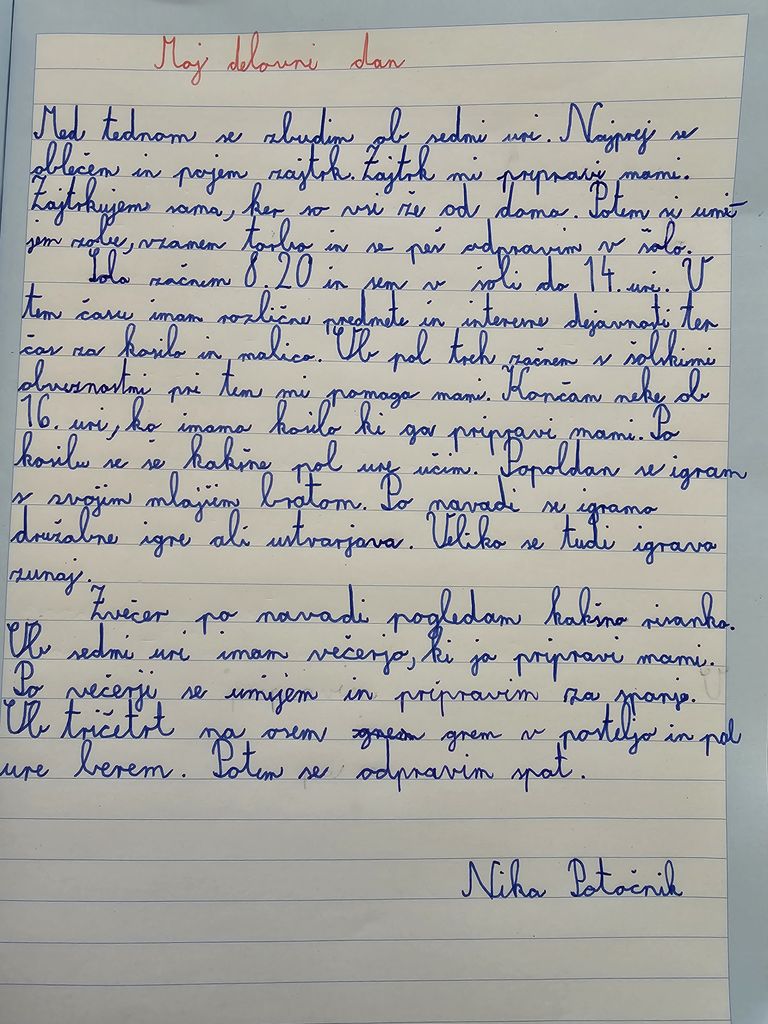 Moj delovni dan
Med tednom se zbudim ob sedmi uri. Najprej se
oblečem in pojem zajtrk. Zajtrk mi pripravi mami.
Zajtrkujem sama, ker so vsi že od doma. Potem si umi-
jem zobe, vzamem torbo in se peš odpravim v šolo.
Šolo začnem 8.20 in sem v šoli do 14. uri. V
tem času imam različne predmete in interesne dejavnosti ter
čas za kosilo in malico. Ob pol treh začnem s šolskimi
obveznostmi pri tem mi pomaga mami. Končam neke ob
16. uri, ko imamo kosilo ki ga pripravi mami. Po
kosilu se še kakšne pol ure učim. Popoldan se igram
s svojim mlajšim bratom. Po navadi se igramo
družabne igre ali ustvarjava. Veliko se tudi igrava
zunaj.
Zvečer po navadi pogledam kakšno risanko.
Ob sedmi uri imam večerjo, ki jo pripravi mami.
Po večerji se umijem in pripravim za spanje.
Ob tričetrt na osem grem v posteljo in pol
ure berem. Potem se odpravim spat.
Nika Potočnik